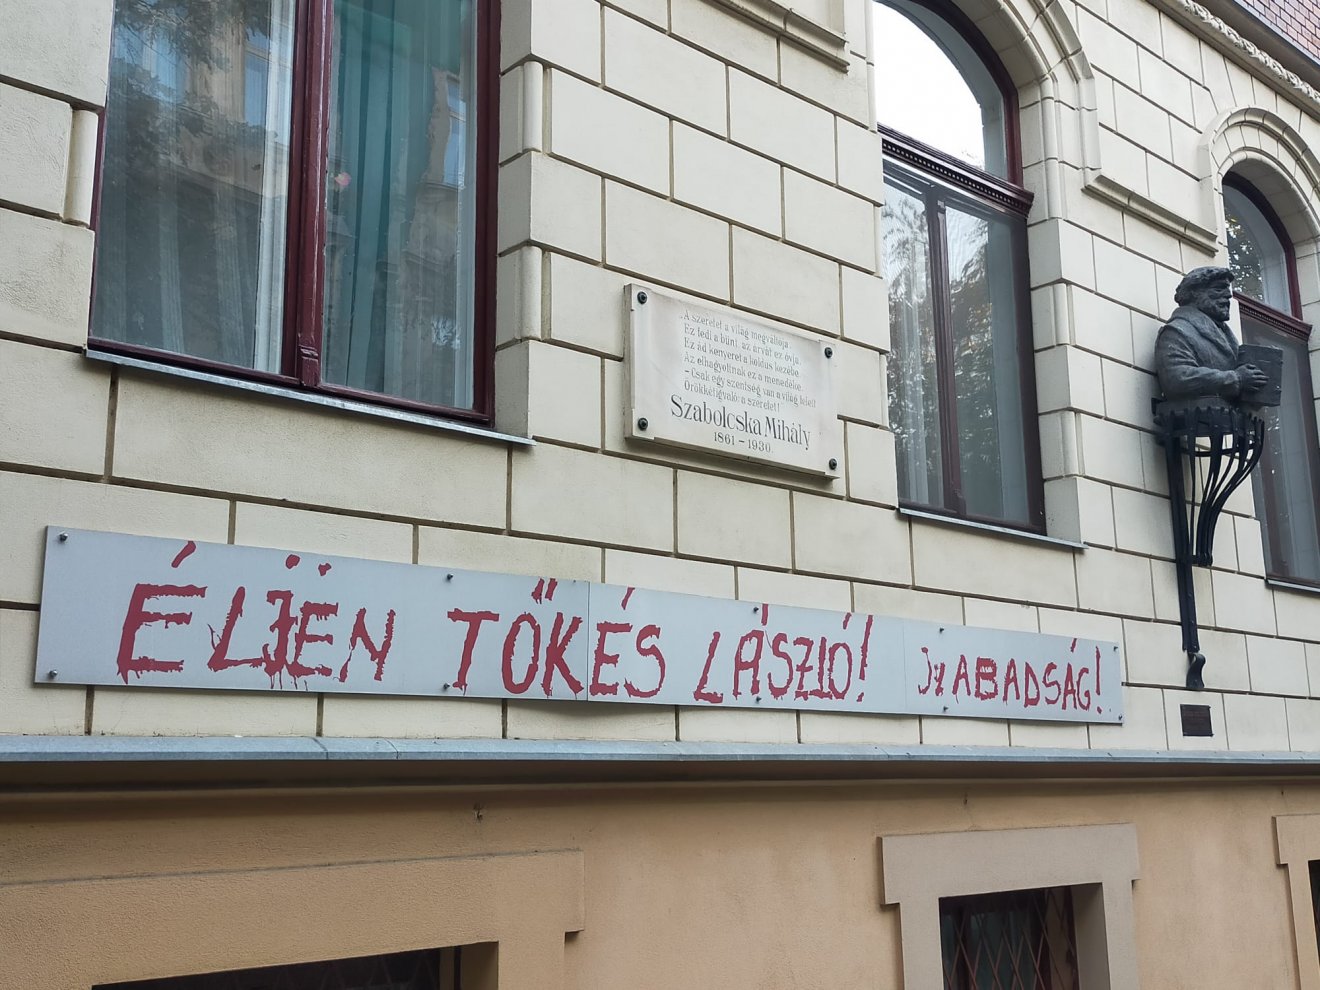 „A szeretet a világ megváltója.
Ez fedi a bűnt, az árvát ez óvja,
Ez ád kenyeret a koldus kezébe,
Az elhagyottnak ez a menedéke.
- Csak egy szentség van a világ felett
Örökkétigvaló: a szeretet!
Szabolcska Mihály
1861 - 1930.
ÉLJËN TŐKÉS LÁSZLÓ! SZABADSÁG!